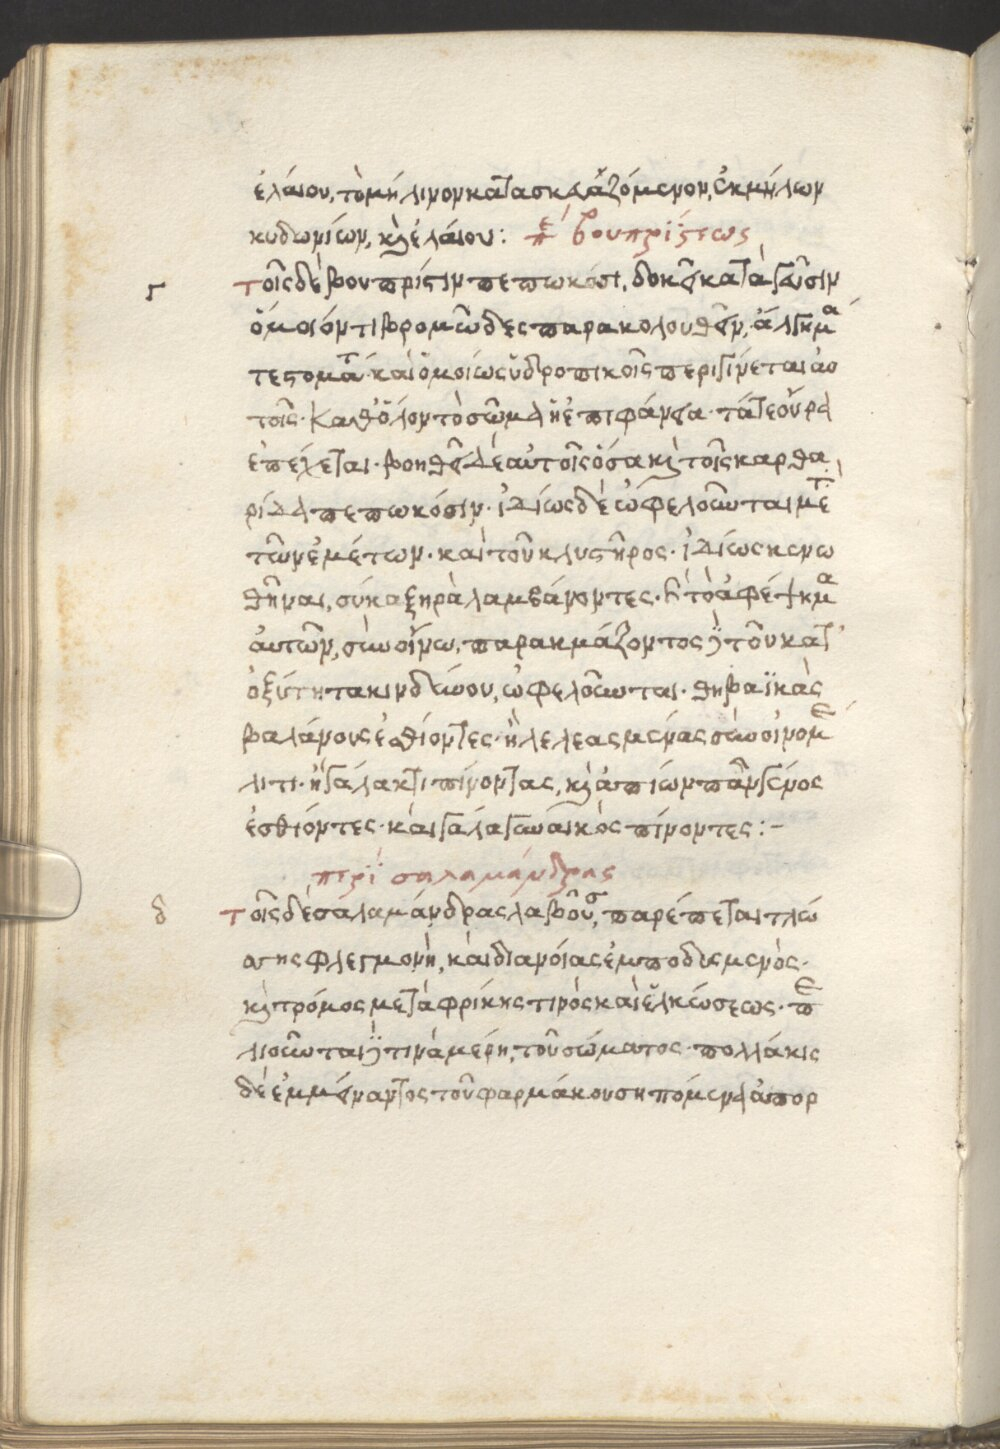 ἐλαίου, τὸ μήλινον κατασκευαζόμενον, ἐκ μήλων
κυδωνίων, καὶ ἐλαίου: πε βουπρίστεως
γ τοῖς δὲ βούπρηστιν πεπωκόσι, δοκεῖ κατὰ γεῦσιν
ὅμοιόν τι βρομῶδες παρακολουθεῖν, ἄλγημα
τε στομα τ καὶ ὁμοίως ὑδροπικοῖς περιγίνεται αὐ
τοῖς. καθ' ὅλον τὸ σῶμα ἡ ἐπιφάνεια. τά τε οὖρα
ἐπέχεται. βοηθεῖ δὲ αὐτοῖς ὅσα καὶ τοῖς κανθα
ρίδα πεπωκόσιν. ἰδίως δὲ ὠφελοῦνται με τ
τῶν ἐμέτων. καὶ τοῦ κλυστῆρος. ἰδίως κενω
θῆναι, σύκα ξηρὰ λαμβάνοντες. καὶ τὸ ἀφέψημα
αὐτῶν, σὺν οἴνω, παρακμάζοντος δὲ τοῦ κατ'
ὀξύτητα κινδύνου, ὠφελοῦνται. θηβαϊκὰς
βαλάνους ἐσθίοντες. ἢ λελεασμένας σὺν οἰνομε
λιτι. ἢ γάλακτι πίνοντας, καὶ ἀπίων πᾶν γένος
ἐσθίοντες. καὶ γάλα γυναικὸς πίνοντες:-
περὶ σαλαμάνδρας
δ τοῖς δὲ σαλαμάνδρας λαβοῦσ, παρέπεται γλώ
σης φλεγμονὴ, καὶ διανοίας ἐμποδισμενὸς.
καὶ τρόμος μετὰ φρίκης τινὸς καὶ ἑλκώσεως. πε
λιοῦνται δὲ τινὰ μέρη, τοῦ σώματος. πολλάκις
δὲ ἐμμείναντος τοῦ φαρμάκου σηπόμενα ἀπορ